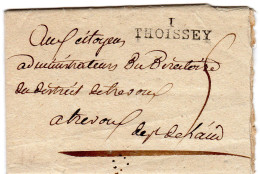 1
THOISSEY
Aux citoyens
administrateurs Du Directoire
du district de trevoux
a trevoux